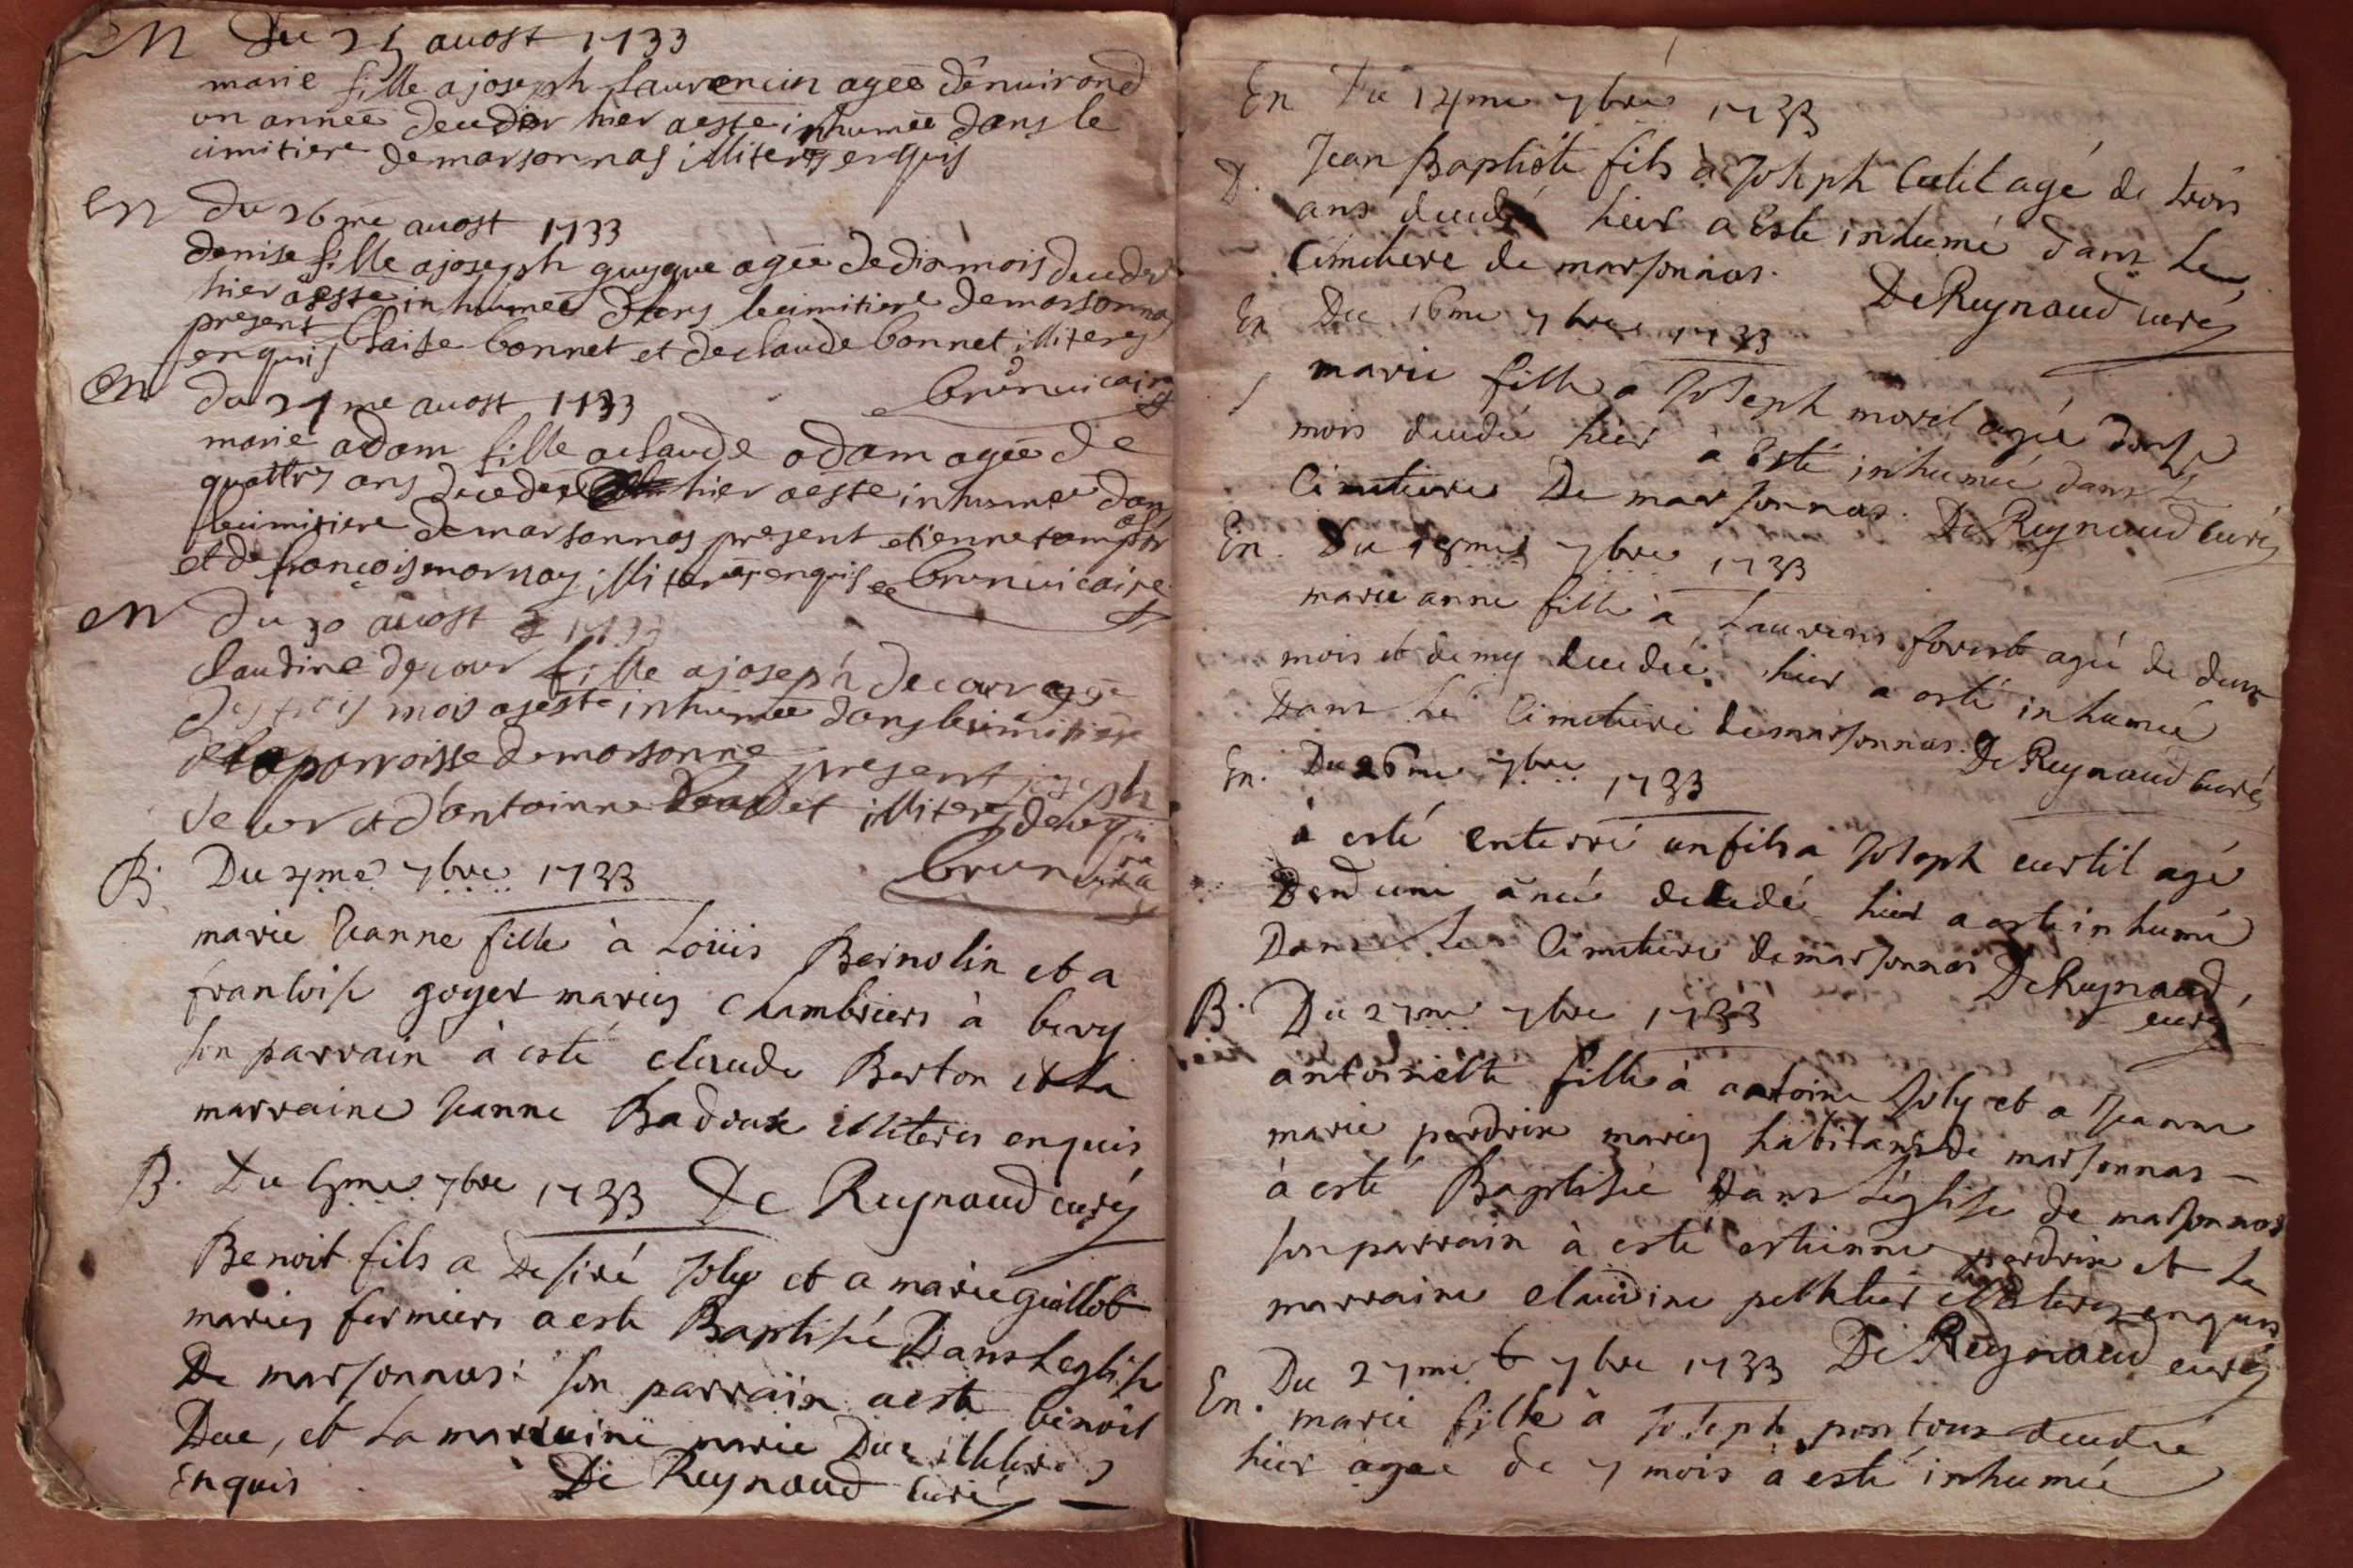 En Du 25 auost 1733
marie fille a joseph laurencin agee denuirond
un année decedér hier aeste inhumée dans le
cimitiere demarsonnas illiteres enquis
En du 26me auost 1733
denise fille ajoseph guygue agée dedix mois deceder
hier aeste inhumeé dans lecimitiere demarsonnas
present blaise bonnet et declaude bonnet illiteres
enquis
brunuicaire
En du 27me auost 1733
marie adam fille aclaude adam ageé de
quattres ans decedeé hier aeste inhumeé dans
lecimitiere demarsonnas present etienne
et de françois mornay illiteres enquis brunuicaire
en du 30 auost 1733
claudine decour fille ajoseph decour agée
de trois mois aesté inhumeé dans lecimitiere
de laparroisse demarsonna present joseph
decour et d'antoinne et illiteres
brun
B. Du 4me 7bre 1733
marie Jeanne fille à Loüis Bernolin et a
francoise goyet mariés Chambriers à bevy
son parrain à esté claude Berton et la
marraine Jeanne Badoux illiteres enquis
B. Du 5me 7bre 1733 De Reynaud curé
Benoit fils a Desiré Joly et a marie guillot
mariés fermiers a esté Baptisé Dans Leglise
De marsonnas: son parrain a esté benoit
Duc, et La marraine marie Duc illiteres
Enquis De Reynaud Curé
En Du 14me 7bre 1733
D. Jean Baptiste fils à Joseph Cutil agé de trois
ans decedé hier a Esté inhumé dans Le
Cimetiere de marsonnas. De Reynaud curé
En Du 16me 7bre 1733
marie fille a Joseph morel agée donse
mois decedée hier à Esté inhumée dans Le
Cimetiere De marsonnas. De Reynaud Curé
En. Du 18me 7bre 1733
marie anne fille à Laurens forest agée de deux
mois et demy decedée hier a esté inhumée
Dans Le Cimetiere demarsonnas. De Reynaud Curé
En. Du 26me 7bre 1733
à esté enterré un fils a Joseph curtil agé
Dend une année decedé hier a esté inhumé
Dans Le Cimetiere demarsonnas De Reynaud
curé
B. Du 27me 7bre 1733
antoinette fille à antoine Joly et a Jeanne
marie perdrix mariés habitans de marsonnas
à esté Baptisée dans Léglise de marsonnas
son parrain à esté estienne perdrix et La
marraine claudine pelletier illiteres enquis
En. Du 27me 7bre 1733 De Reynaud curé
marie fille à Joseph pontoux decedée
hier agee de 7 mois à esté inhumée